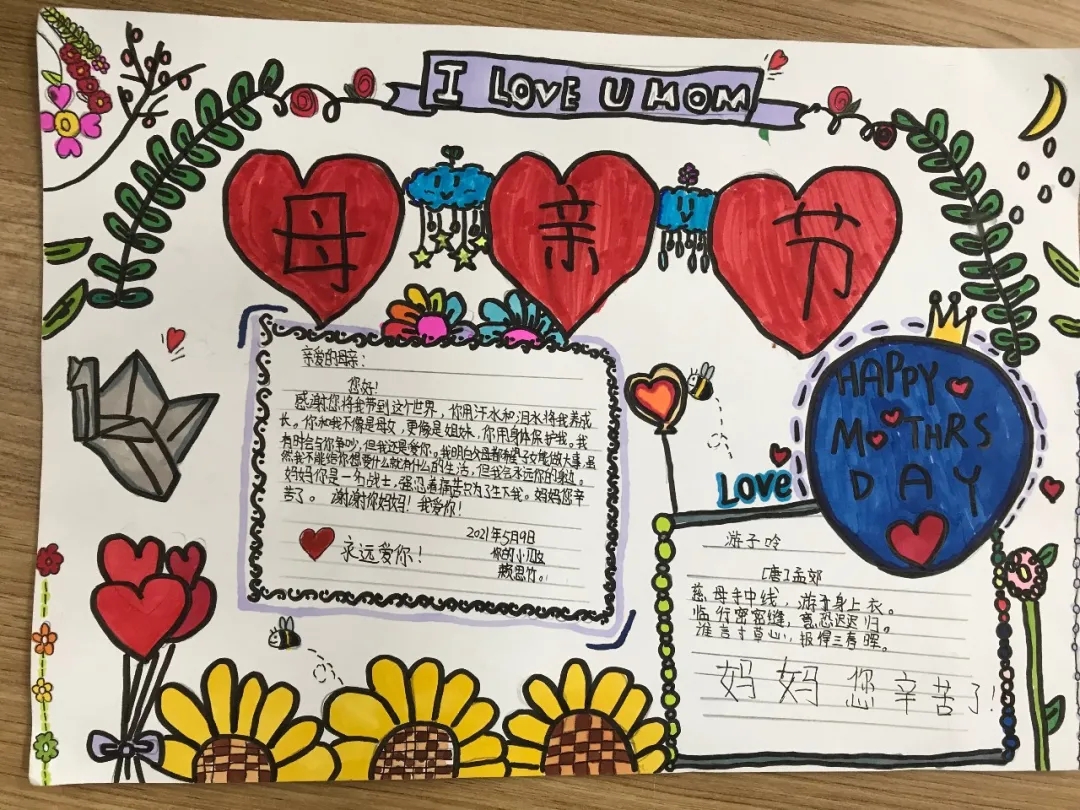 I LOVE U MOM
母 亲 节
亲爱的母亲：
您好！
感谢您将我带到这个世界，你用汗水和泪水将我养成
长。你和我不像是母女，更像是姐妹，你用身体保护我。我
有时会与你争吵，但我还是爱你。我明白父母都希望子女能做大事，虽
然我不能给你想要什么就有什么的生活，但我会永远你的身边。
妈妈你是一名战士，强忍着痛苦只为了生下我。妈妈您辛
苦了。谢谢你妈妈！我爱你！
2021年5月9日
永远爱你！
你的小
思竹。
HAPPY
MOTHRS
DAY
Love
游子吟
[唐]孟郊
慈母手中线，游子身上衣。
临行密密缝，意恐迟迟归。
谁言寸草心，报得三春晖。
妈妈您辛苦了！